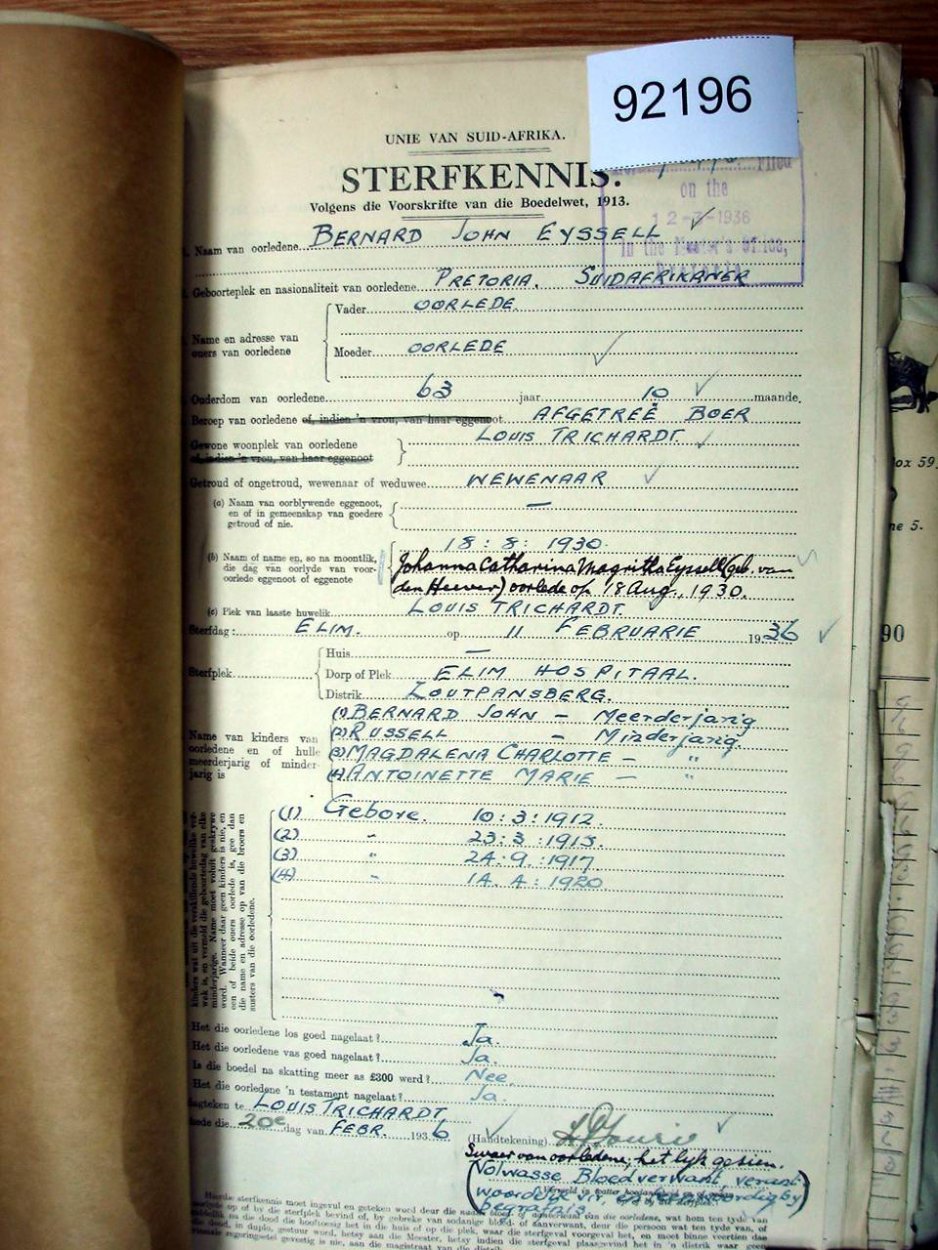 92196
UNIE VAN SUID-AFRIKA.
STERFKENNIS.
Volgens die Voorskrifte van die Boedelwet, 1913.
Filed
on the
12-3-1936
In the Master's Office,
Naam van oorledene BERNARD JOHN EYSSELL
Geboorteplek en nasionaliteit van oorledene PRETORIA. SUIDAFRIKANER
Name en adresse van ouers van oorledene
Vader OORLEDE
Moeder OORLEDE
Ouderdom van oorledene 63 jaar 10 maande.
Beroep van oorledene of, indien 'n vrou, van haar eggenoot AFGETREË BOER
Gewone woonplek van oorledene LOUIS TRICHARDT
of, indien 'n vrou, van haar eggenoot
Getroud of ongetroud, wewenaar of weduwee WEWENAAR
(a) Naam van oorblywende eggenoot,
en of in gemeenskap van goedere
getroud of nie. —
18:8:1930
(b) Naam of name en, so na moontlik,
die dag van oorlyde van voor-
oorlede eggenoot of eggenote
Johanna Catharina Magritha Eyssell (geb. van
den Heever) oorlede op 18 Aug., 1930.
(c) Plek van laaste huwelik LOUIS TRICHARDT
Sterfdag: ELIM. op 11 FEBRUARIE 1936
Sterfplek
Huis —
Dorp of Plek ELIM HOSPITAAL.
Distrik ZOUTPANSBERG.
Name van kinders van
oorledene en of hulle
meerderjarig of minder-
jarig is
(1) BERNARD JOHN – Meerderjarig
(2) RUSSELL – Minderjarig
(3) MAGDALENA CHARLOTTE – "
(4) ANTOINETTE MARIE – "
(1) Gebore. 10:3:1912.
(2) " 23:3:1915.
(3) " 24.9.:1917
(4) " 14.4:1920
word. Wanneer daar geen kinders is nie, en
een of beide ouers oorlede is, gee dan
die name en adresse op van die broers en
susters van die oorledene.
Het die oorledene los goed nagelaat? Ja.
Het die oorledene vas goed nagelaat? Ja.
Is die boedel na skatting meer as £300 werd? Nee.
Het die oorledene 'n testament nagelaat? Ja.
LOUIS TRICHARDT
die 20e dag van FEBR. 1936
(Handtekening)
Swaer van oorledene, het lyk gesien.
(Volwasse Bloedverwant
begrafnis
ox 59
90